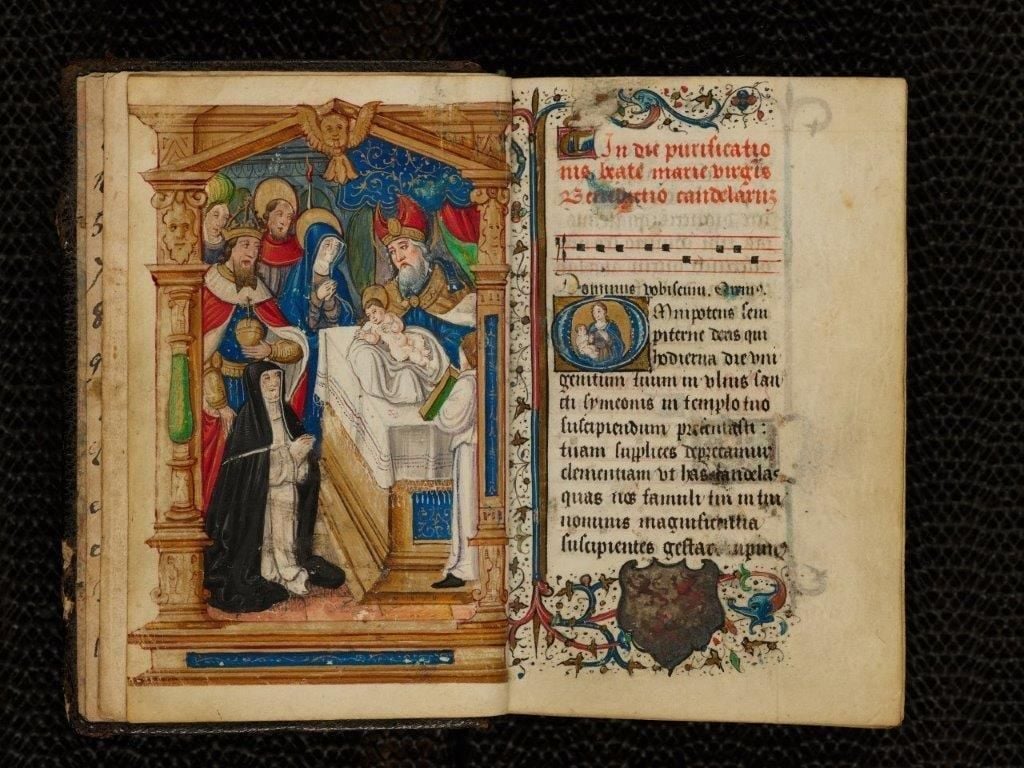 In die purificatio
nis beate marie virgis
Benedictio candelaruz
Dominus vobiscum. Oremus.
Omnipotens sem
piterne deus qui
hodierna die vni
genitum tuum in vlnis san
cti symeonis in templo tuo
suscipiendum presentasti:
tuam supplices deprecamur
clementiam vt has candelas
quas nos famuli tui in tui
nominis magnificentia
suscipientes gestare cupim